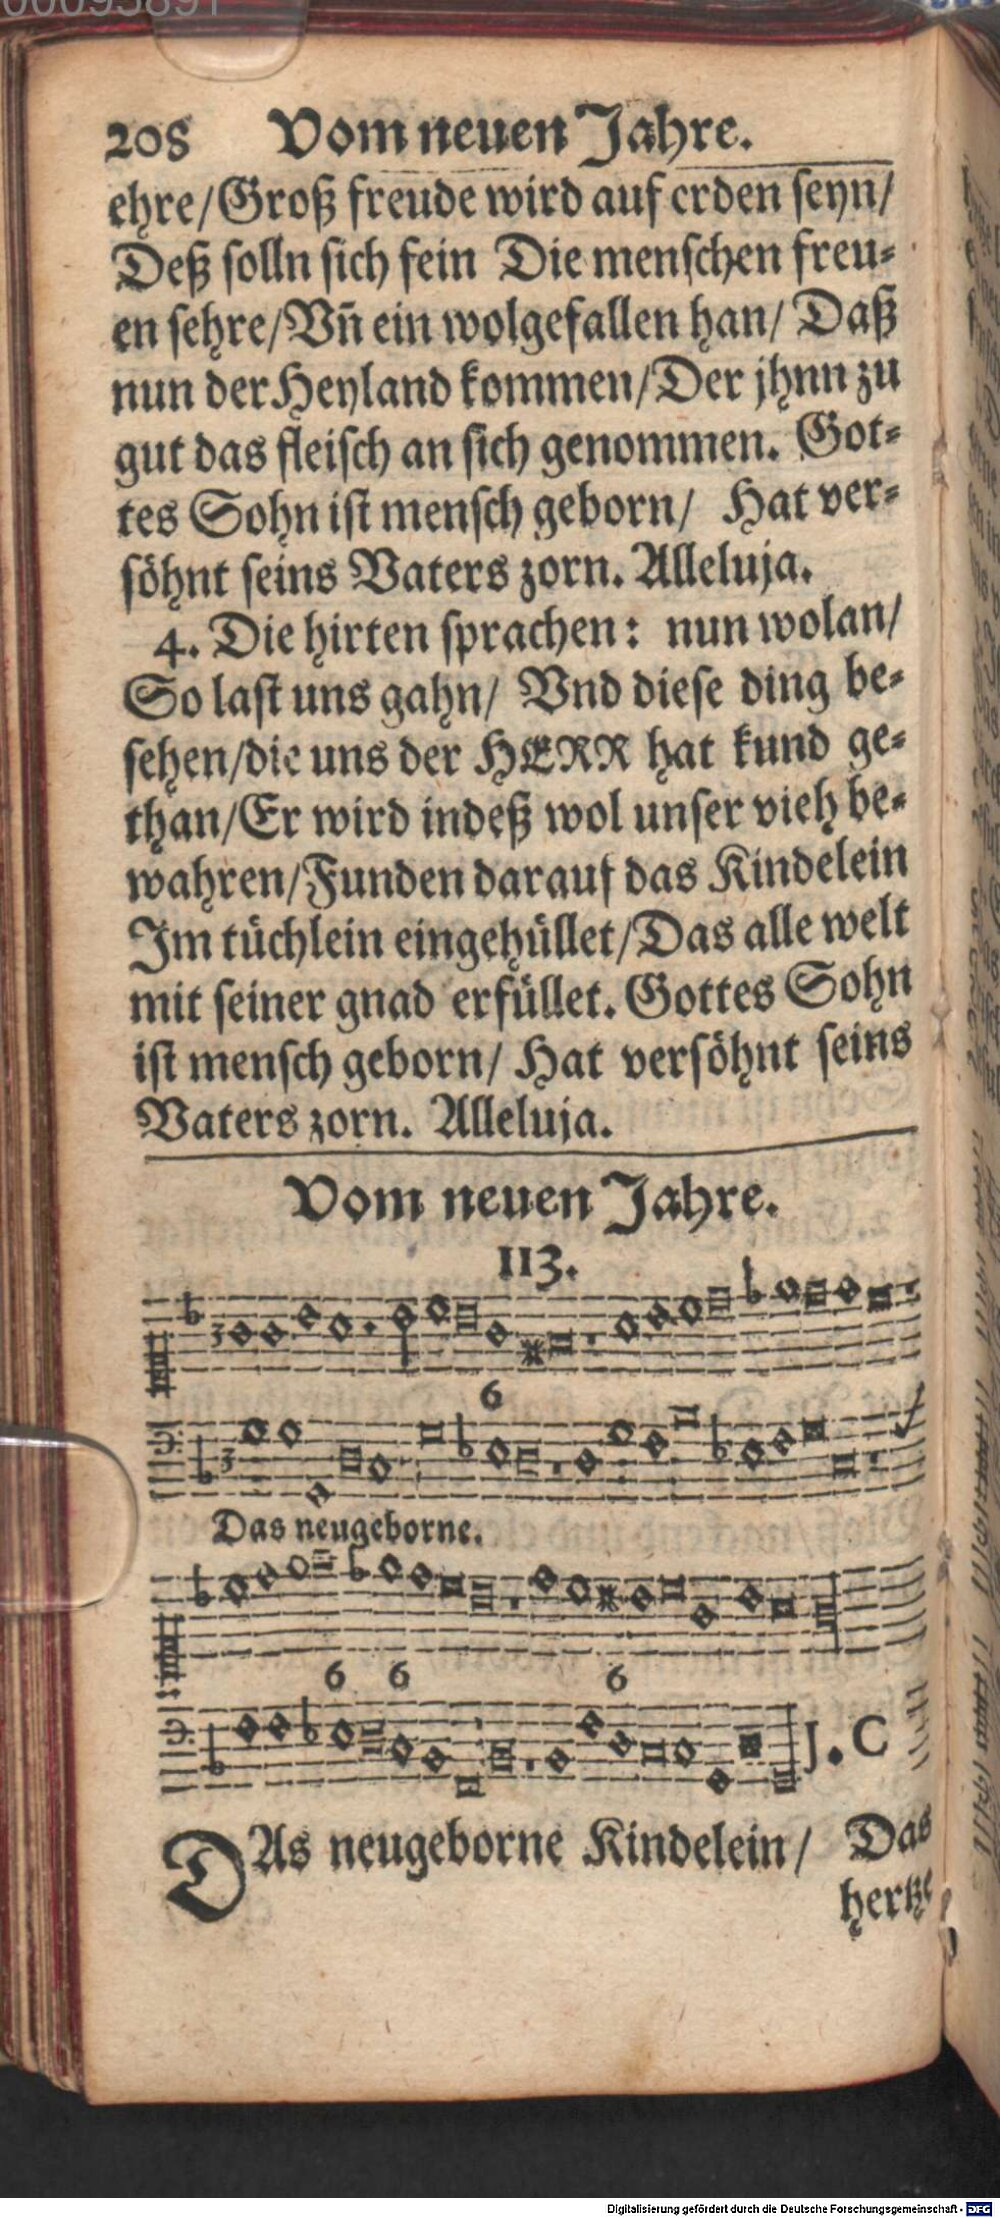 208 Vom neuen Jahre.
ehre/Groß freude wird auf erden ſeyn/
Deß ſolln ſich fein Die menſchen freu⸗
en ſehre/Vn̄ ein wolgefallen han/ Daß
nun der Heyland kommen/Der jhnn zu
gut das fleiſch an ſich genommen. Got⸗
tes Sohn iſt menſch geborn/ Hat ver⸗
ſöhnt ſeins Vaters zorn. Alleluja.
4. Die hirten ſprachen: nun wolan/
So laſt uns gahn/ Vnd dieſe ding be⸗
ſehen/die uns der HERR hat kund ge⸗
than/Er wird indeß wol unſer vieh be⸗
wahren/Funden darauf das Kindelein
Im tüchlein eingehüllet/Das alle welt
mit ſeiner gnad erfüllet. Gottes Sohn
iſt menſch geborn/ Hat verſöhnt ſeins
Vaters zorn. Alleluja.
Vom neuen Jahre.
113.
6
Das neugeborne.
6 6 6
J. C
DAs neugeborne Kindelein/ Das
Digitalisierung gefördert durch die Deutsche Forschungsgemeinschaft - DFG